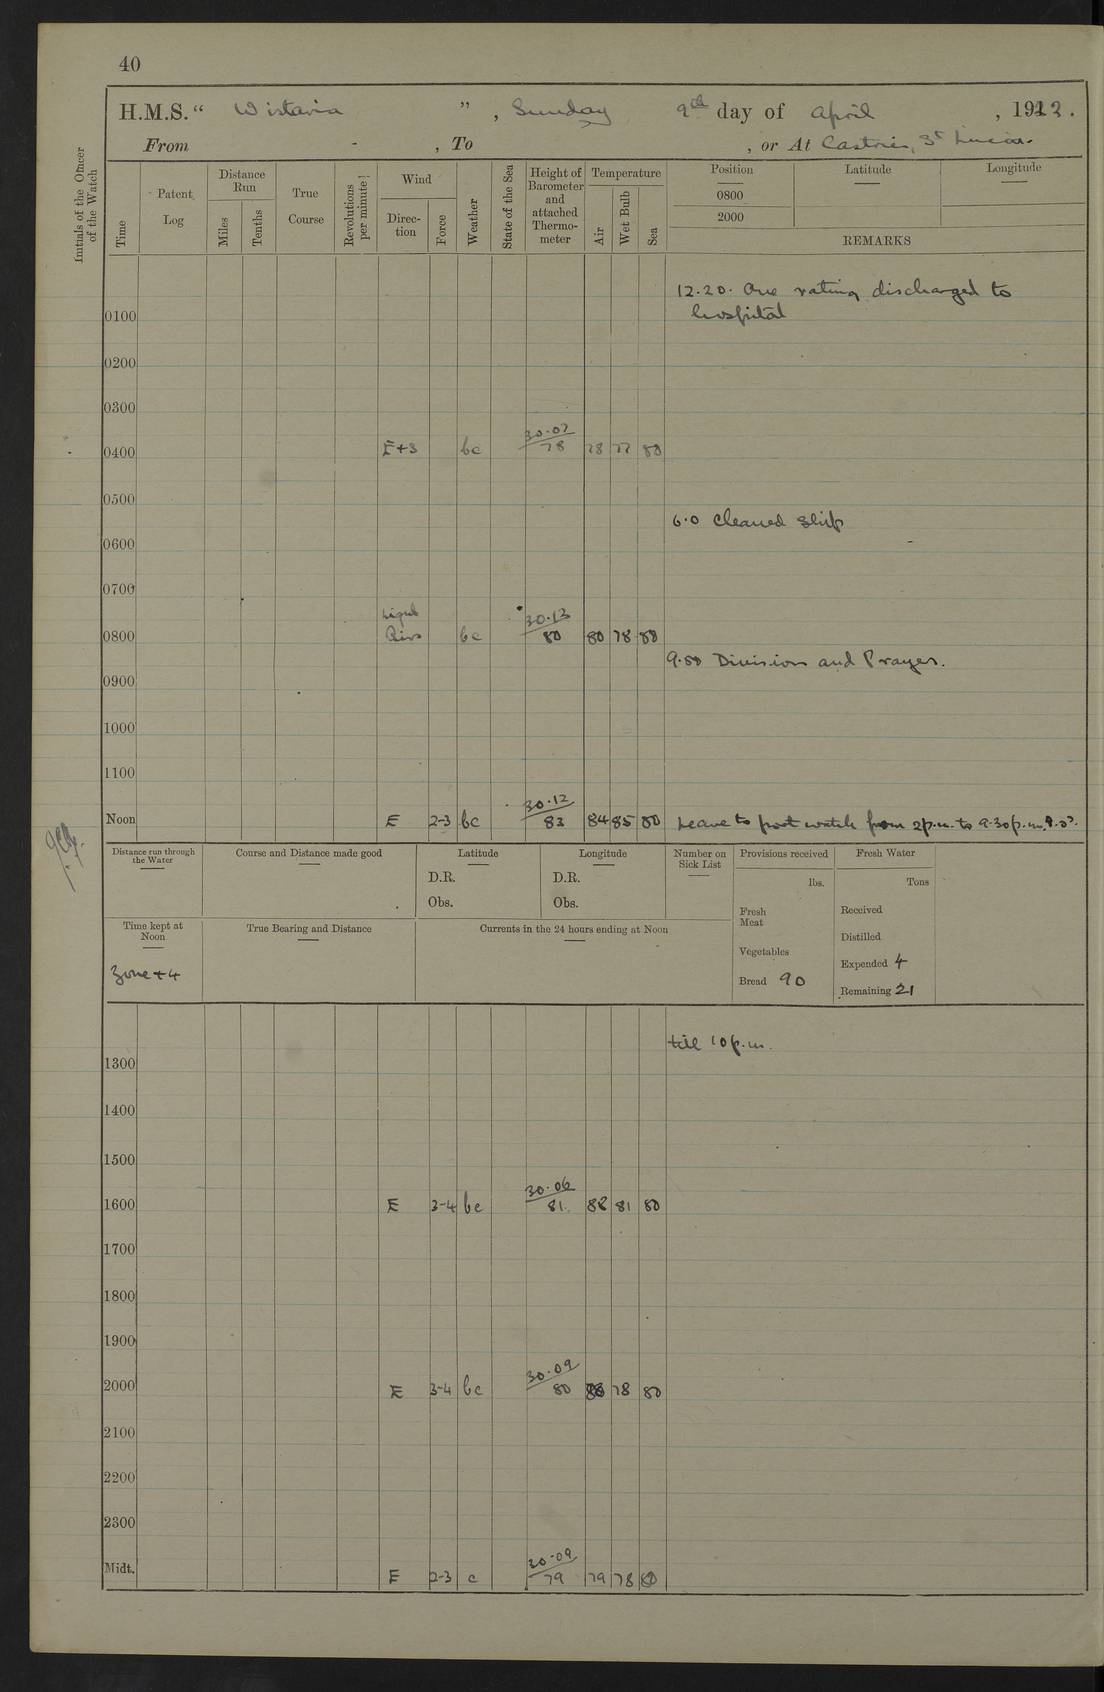 40
H.M.S. “ Wistaria ” , Sunday 9th day of April , 1922.
From - , To , or At Castries, St Lucia.
Initials of the Officer of the Watch
Time
Patent Log
Distance Run
Miles
Tenths
True Course
Revolutions per minute
Wind
Direction
Force
Weather
State of the Sea
Height of Barometer and attached Thermometer
Temperature
Air
Wet Bulb
Sea
Position Latitude Longitude
0800
2000
REMARKS
12.20. One rating discharged to
hospital
0100
0200
0300
0400 E+3 bc 30.07 78 78 77 80
0500
6.0 Cleaned ship
0600
0700
0800 Light Airs bc 30.13 80 80 78 80
9.30 Division and Prayer.
0900
1000
1100
Noon E 2-3 bc 30.12 83 84 85 80 Leave to port watch from 2p.m. to 9.30p.m.
Distance run through the Water
Course and Distance made good
Latitude
D.R.
Obs.
Longitude
D.R.
Obs.
Number on Sick List
Provisions received
lbs.
Fresh Meat
Vegetables
Bread 90
Fresh Water
Tons
Received
Distilled
Expended 4
Remaining 21
Time kept at Noon
Zone +4
True Bearing and Distance
Currents in the 24 hours ending at Noon
till 10p.m.
1300
1400
1500
1600 E 3-4 bc 30.06 81 81 80
1700
1800
1900
2000 E 3-4 bc 30.09 80 78 80
2100
2200
2300
Midt. E 2-3 c 30.09 79 79 78 80